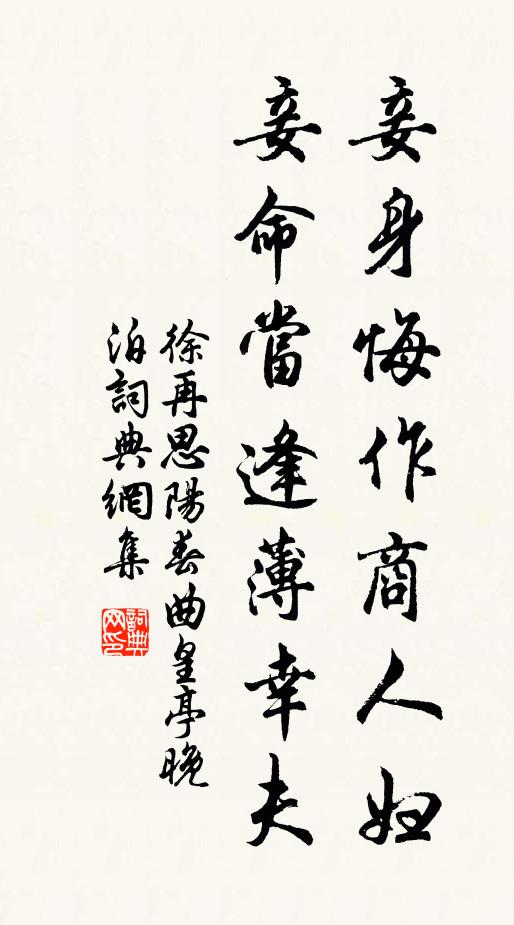 妾身悔作商人婦
妾命當逢薄幸夫
徐再思陽春曲皇亭晚
泊詞典網集
詞典
网印